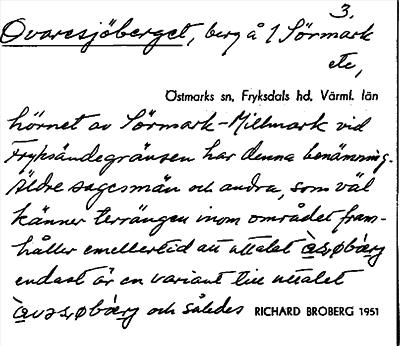 3.
Ovaresjöberget, berg å 1 Sörmark
etc,
Östmarks sn, Fryksdals hd, Värml. län
hörnet av Sörmark-Millmark vid
Fryksändegränsen har denna benämning.
Äldre sagesmän och andra, som väl
känner terrängen inom området fram-
håller emellertid att uttalet
endast är en variant till uttalet
och således RICHARD BROBERG 1951